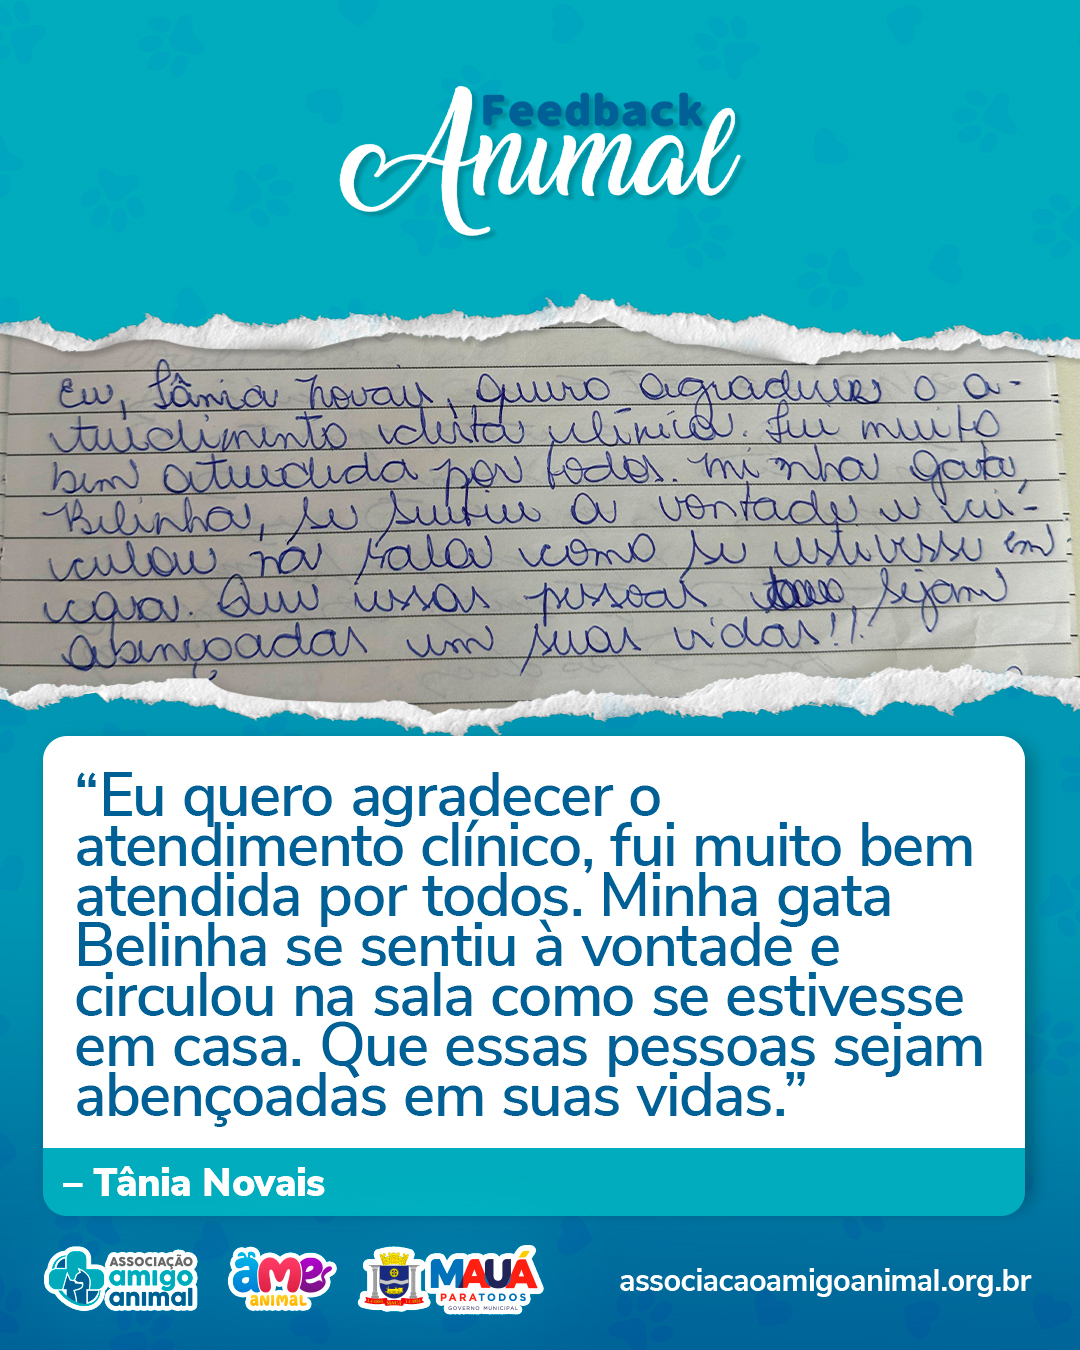 Feedback
Animal
Eu, Tânia Novais, quero agradecer o a-
tendimento desta clínica. Fui muito
bem atendida por todos. Minha gata,
Belinha, se sentiu a vontade e cir-
culou na sala como se estivesse em
casa. Que essas pessoas sejam
abençoadas em suas vidas!!
“Eu quero agradecer o
atendimento clínico, fui muito bem
atendida por todos. Minha gata
Belinha se sentiu à vontade e
circulou na sala como se estivesse
em casa. Que essas pessoas sejam
abençoadas em suas vidas.”
– Tânia Novais
ASSOCIAÇÃO
amigo
animal
ame
ANIMAL
MAUÁ
PARATODOS
GOVERNO MUNICIPAL
associacaoamigoanimal.org.br